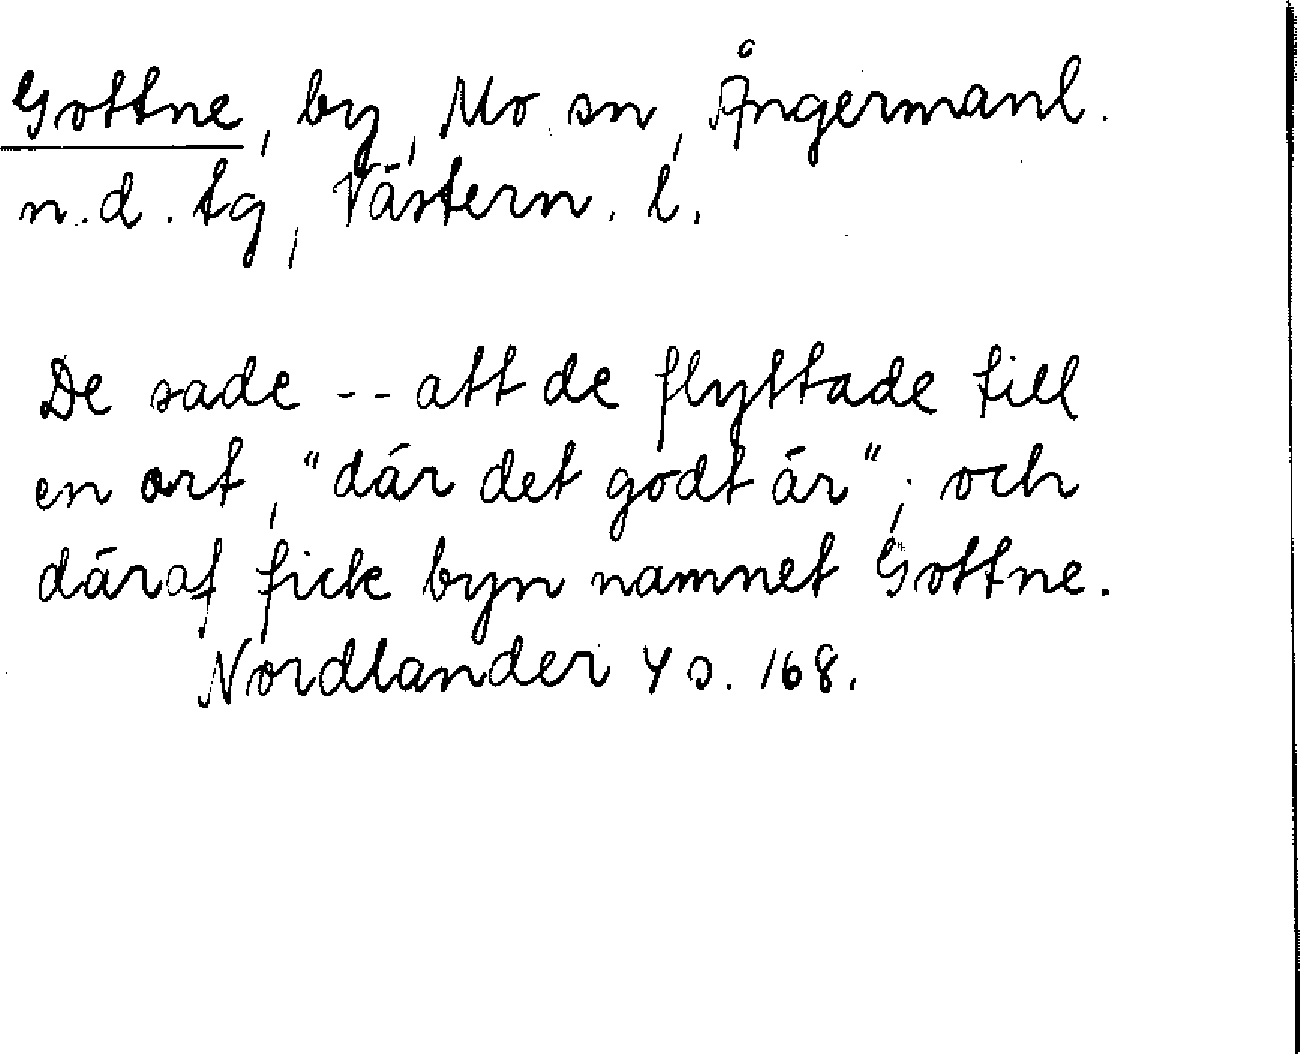 Gottne, by, Mo sn, Ångermanl.
n.d. tg, Västern. l.
De sade -- att de flyttade till
en ort, "där det godt är"; och
däraf fick byn namnet Gottne.
Nordlander 4 s. 168.